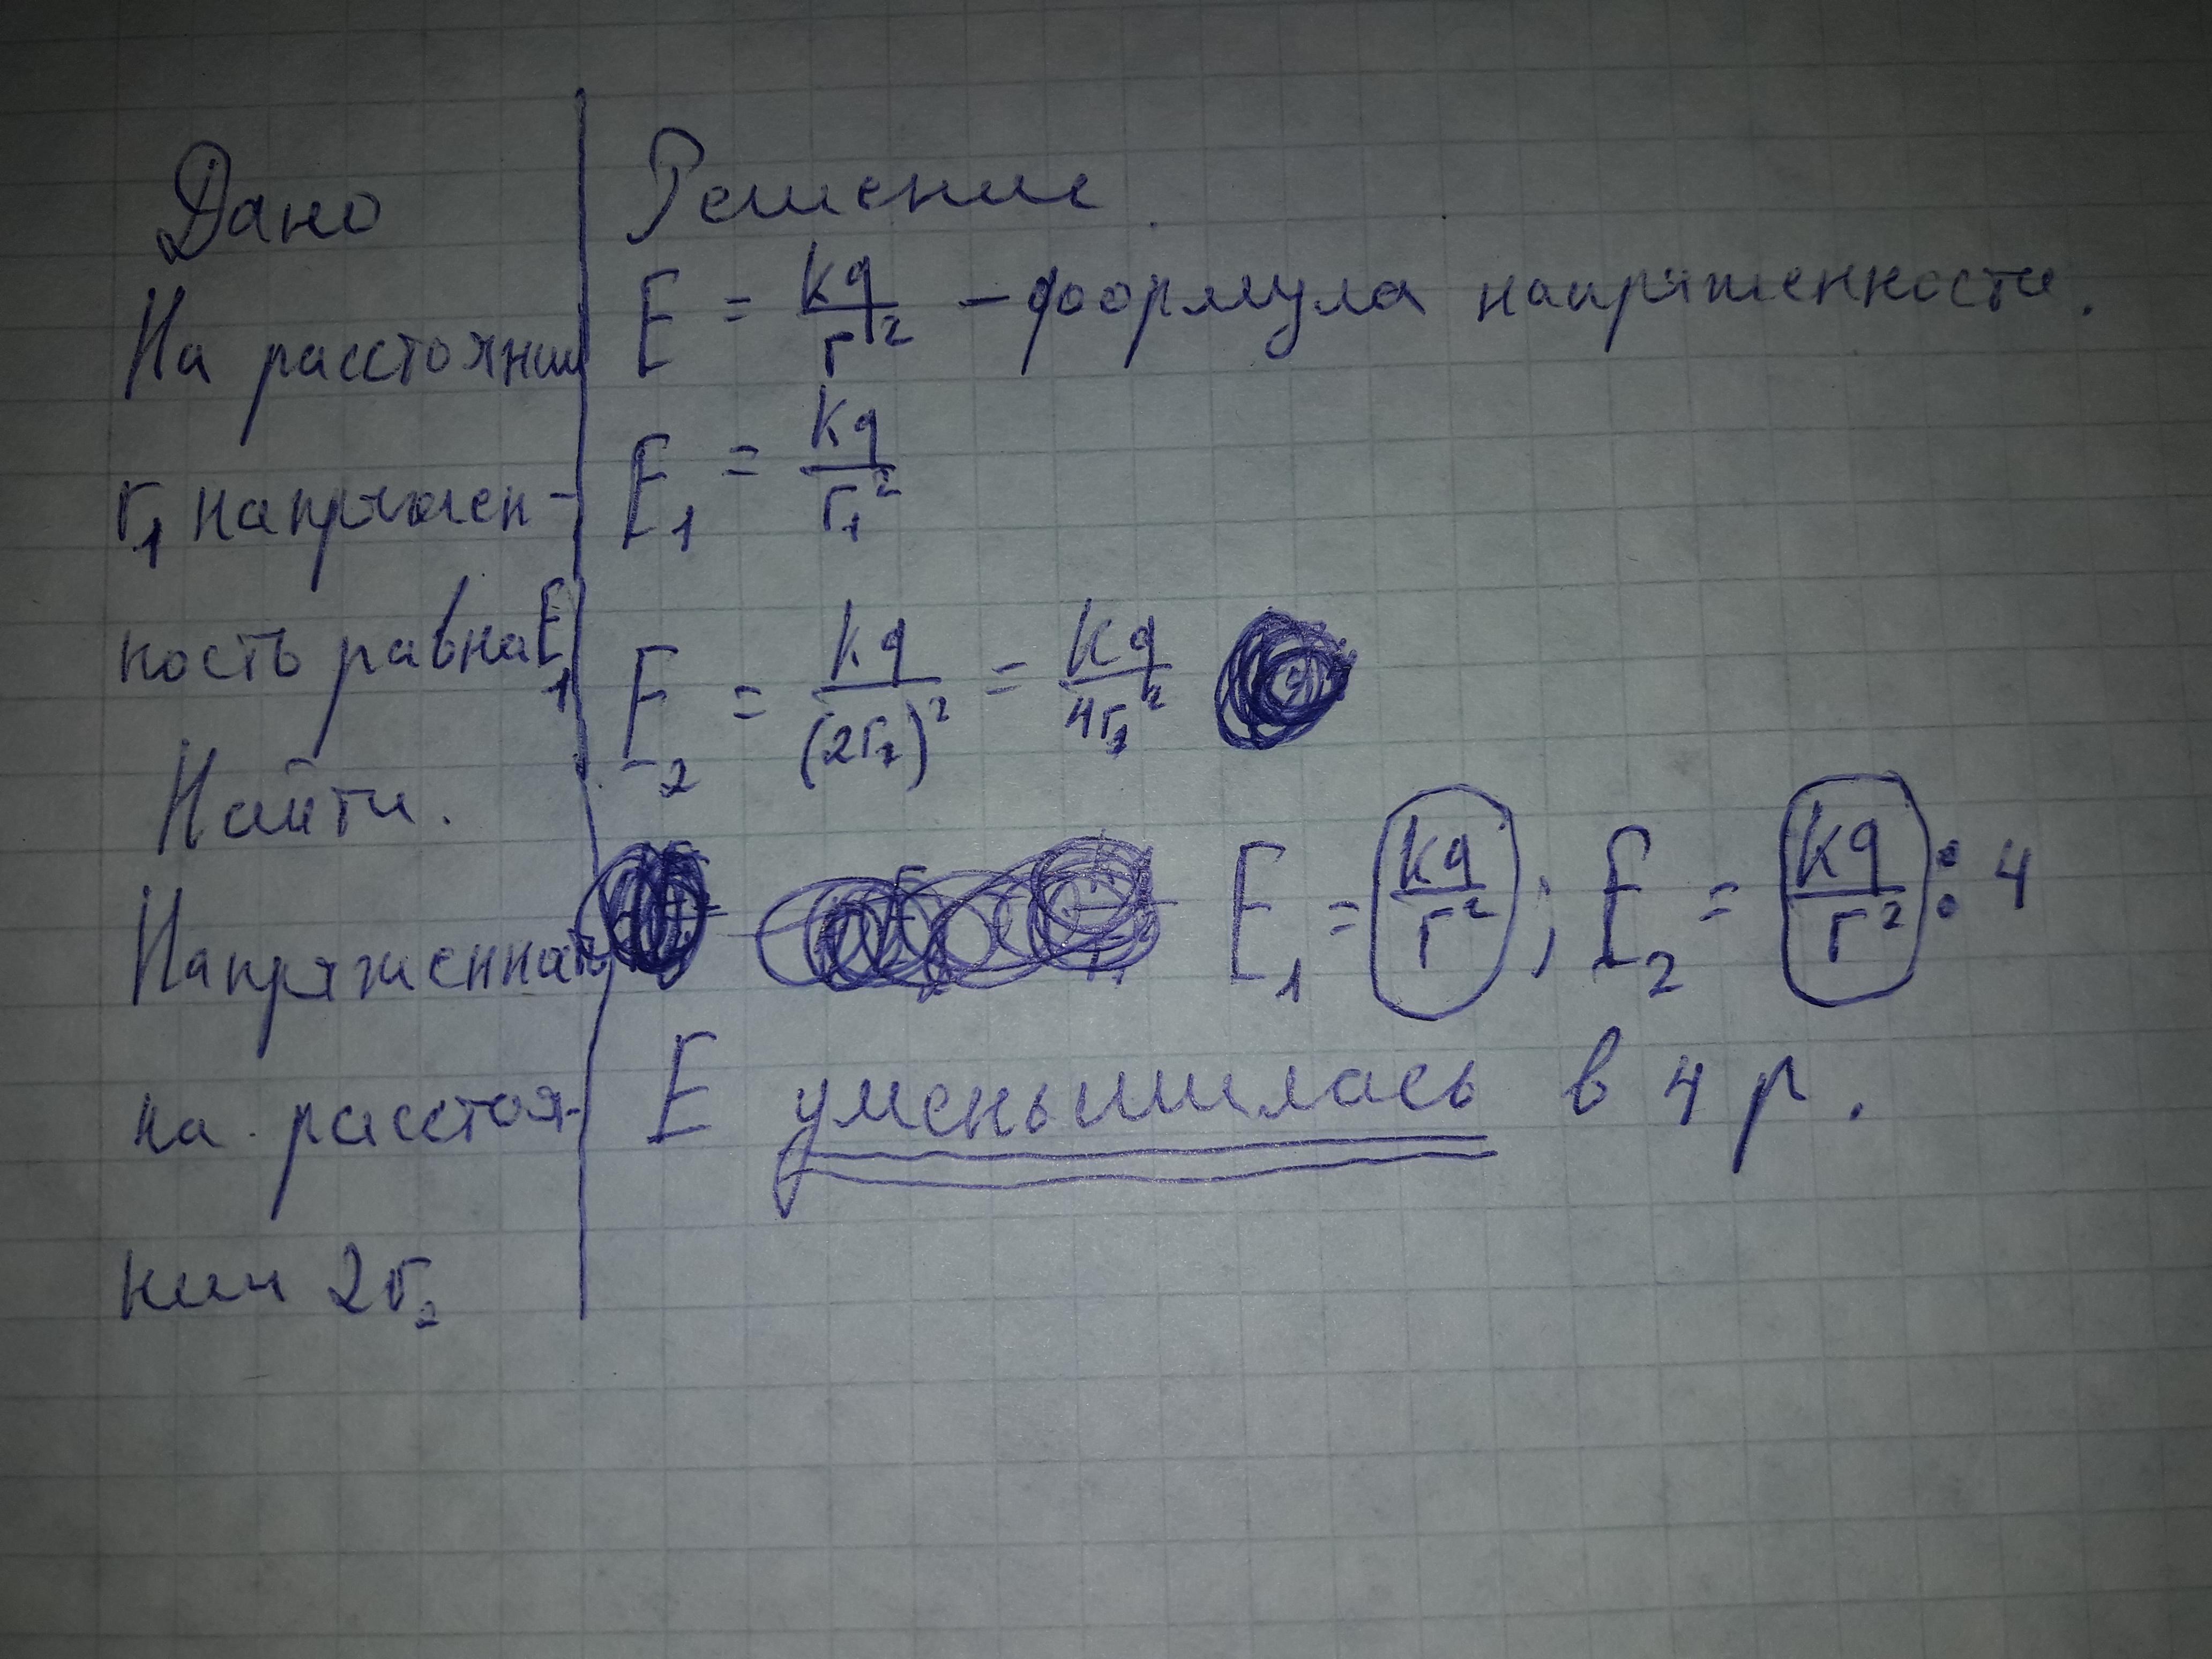 Дано
На расстоянии
r₁ напряжен-
ность равна E₁
Найти.
Напряженная
на расстоя-
нии 2r₂
Решение.
E = kq/r² – формула напряженности.
E₁ = kq/r₁²
E₂ = kq/(2r₂)² = kq/4r₂²
E₁ = kq/r² ; E₂ = kq/r² : 4
E уменьшилась в 4 р.